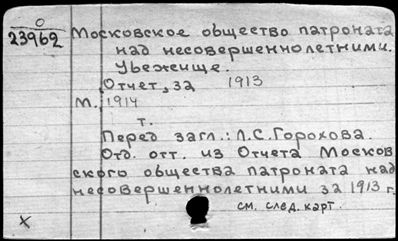 О
23962
Московское общество патроната
над несовершеннолетними.
Убежище.
Отчет, за 1913
М., 1914
т.
Перед загл.: Л.С. Горохова.
Отд. отт. из Отчета Москов
ского общества патроната над
несовершеннолетними за 1913 г.
см. след. карт.
х